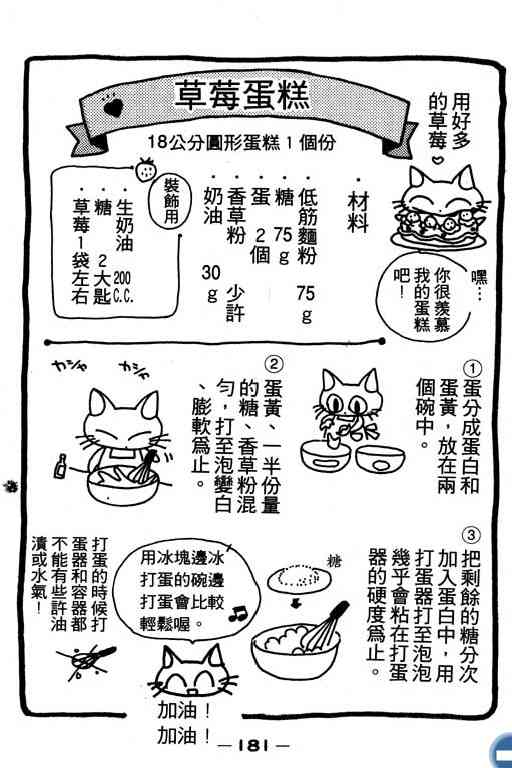 草莓蛋糕
18公分圓形蛋糕1個份
用好多
的草莓
嘿…
你很羨慕
我的蛋糕
吧!
·材料
低筋麵粉 75g
糖 75g
蛋 2個
香草粉 少許
奶油 30g
裝飾用
·生奶油 200C.C.
·糖 2大匙
·草莓1袋左右
①蛋分成蛋白和
蛋黃,放在兩
個碗中。
②蛋黃、一半份量
的糖、香草粉混
勻,打至泡變白
、膨軟爲止。
カシャ
カシャ
③把剩餘的糖分次
加入蛋白中,用
打蛋器打至泡泡
幾乎會粘在打蛋
器的硬度爲止。
糖
用冰塊邊冰
打蛋的碗邊
打蛋會比較
輕鬆喔。
加油!
加油!
打蛋的時候打
蛋器和容器都
不能有些許油
漬或水氣!
—181—